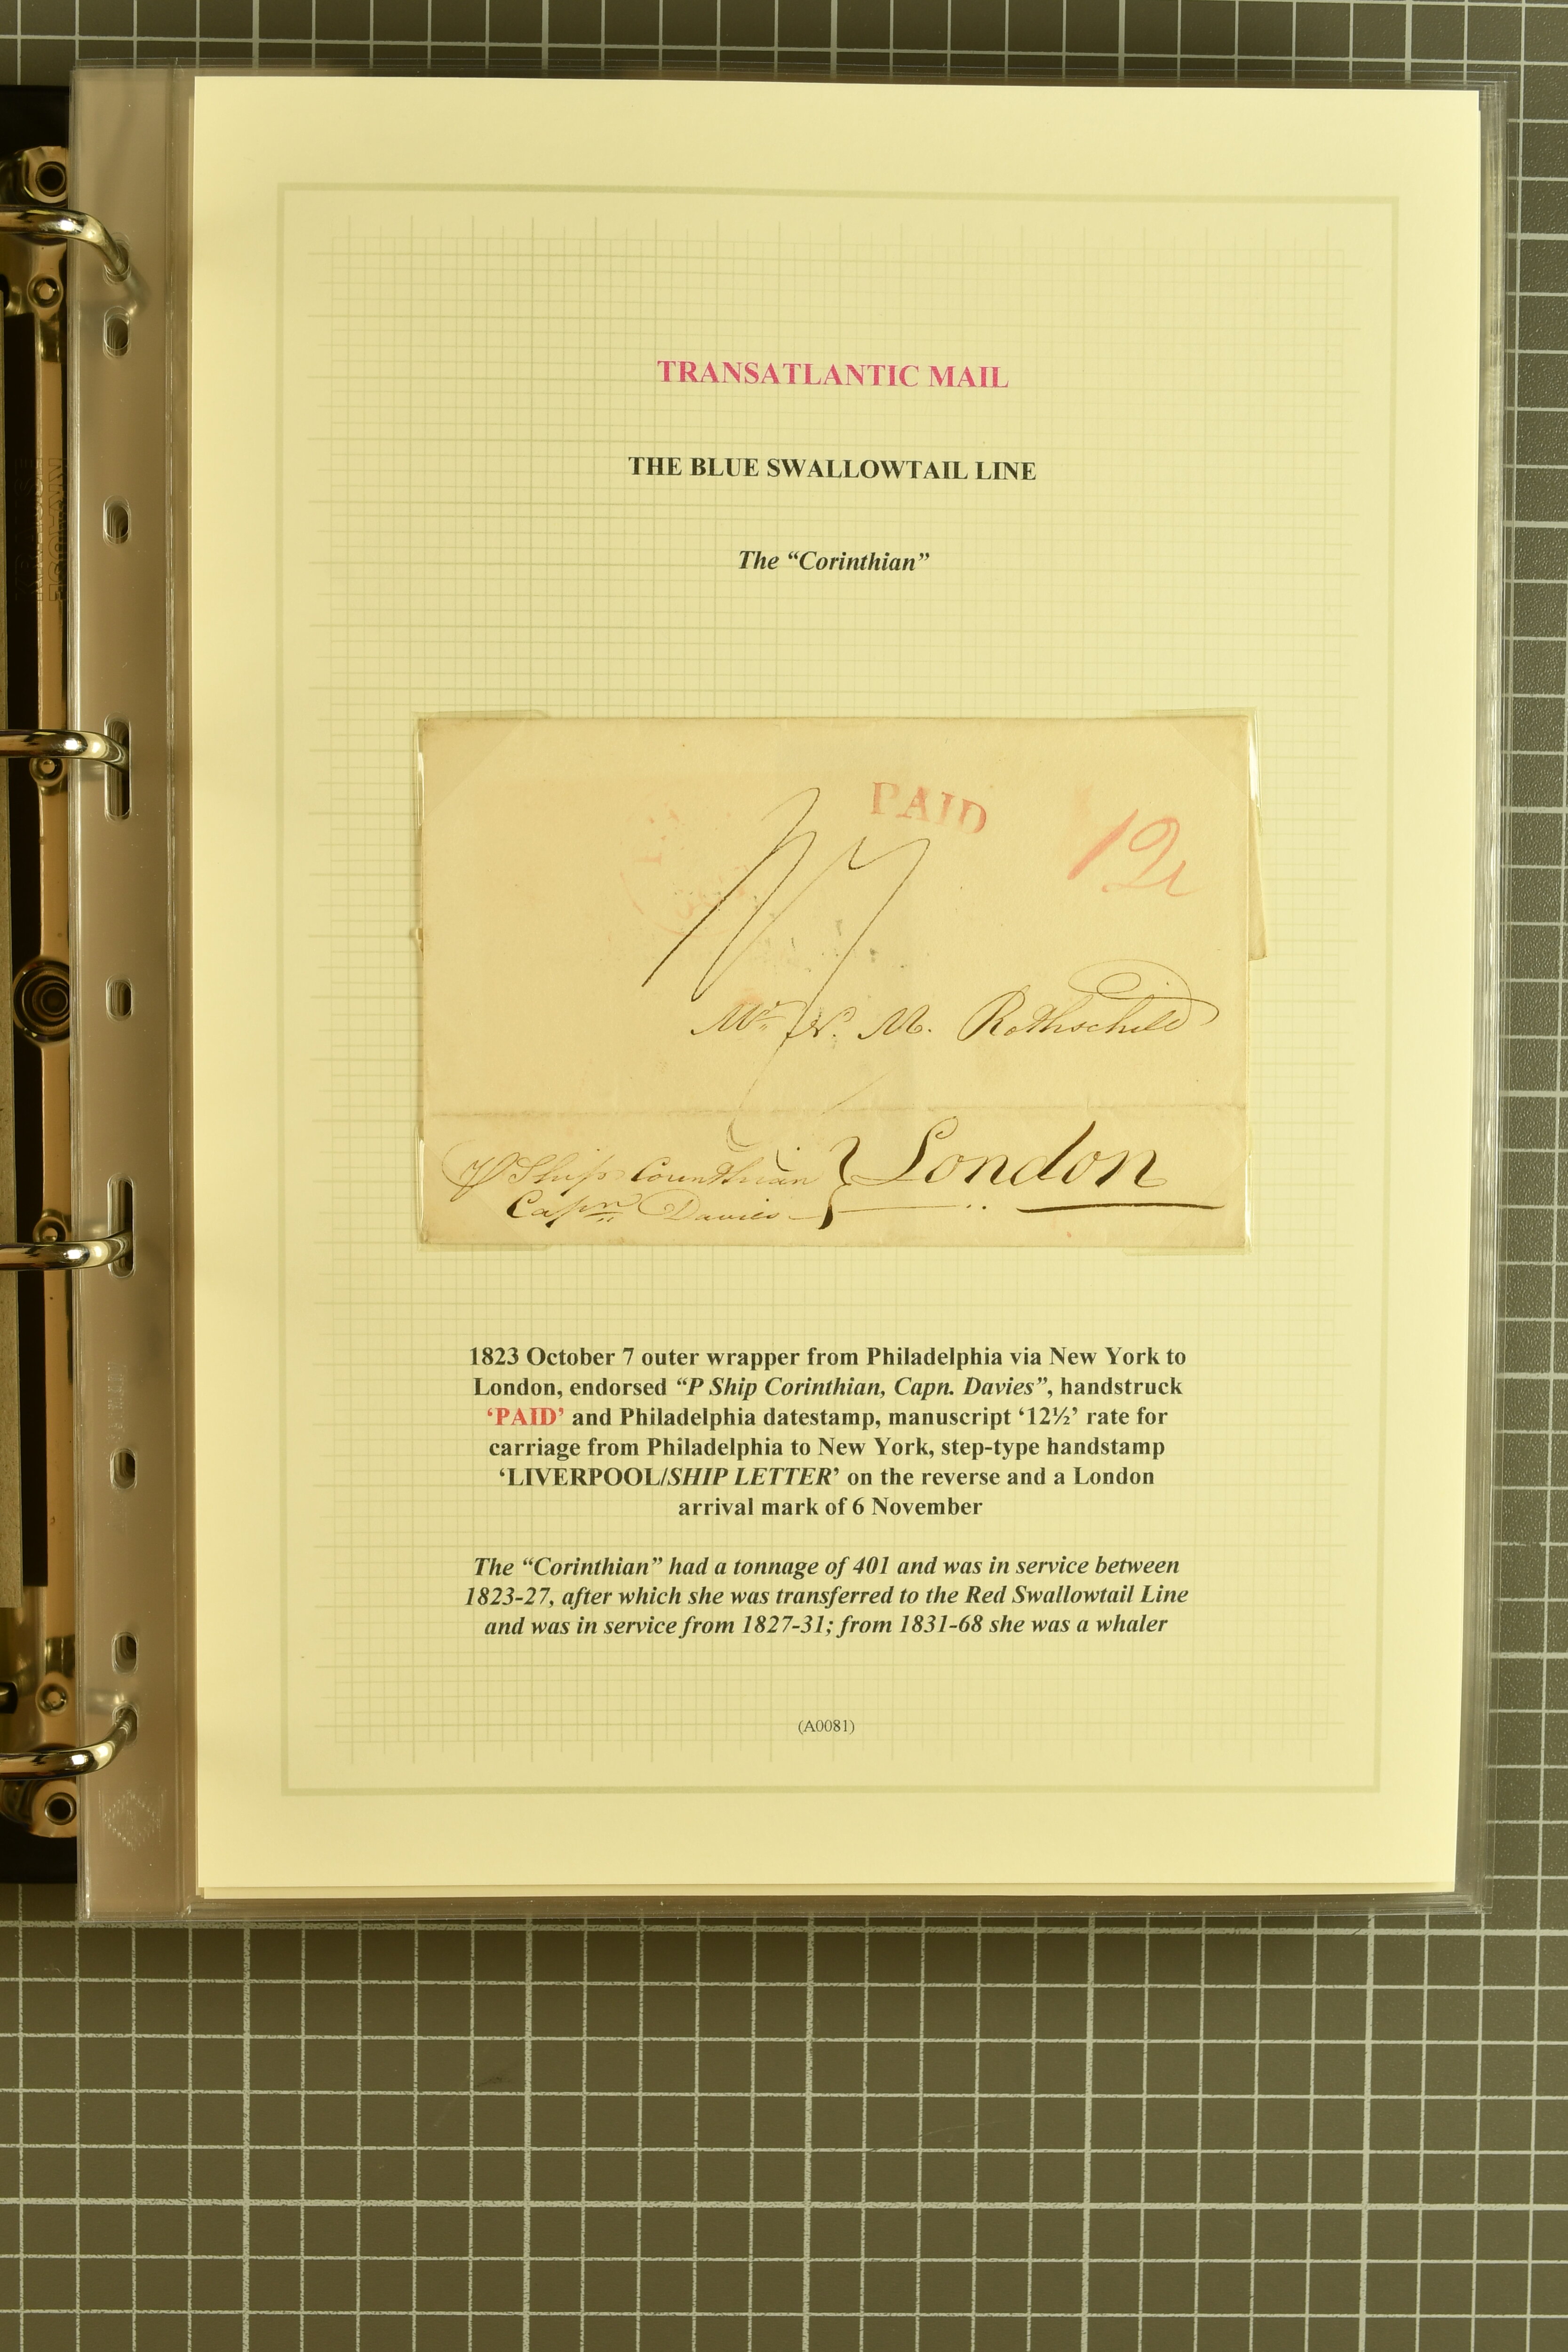 TRANSATLANTIC MAIL
THE BLUE SWALLOWTAIL LINE
The “Corinthian”
PAID
12½
Mr. N. M. Rothschild
London
P Ship Corinthian
Capn Davies
1823 October 7 outer wrapper from Philadelphia via New York to
London, endorsed “P Ship Corinthian, Capn. Davies”, handstruck
‘PAID’ and Philadelphia datestamp, manuscript ‘12½’ rate for
carriage from Philadelphia to New York, step-type handstamp
‘LIVERPOOL/SHIP LETTER’ on the reverse and a London
arrival mark of 6 November
The “Corinthian” had a tonnage of 401 and was in service between
1823-27, after which she was transferred to the Red Swallowtail Line
and was in service from 1827-31; from 1831-68 she was a whaler
(A0081)